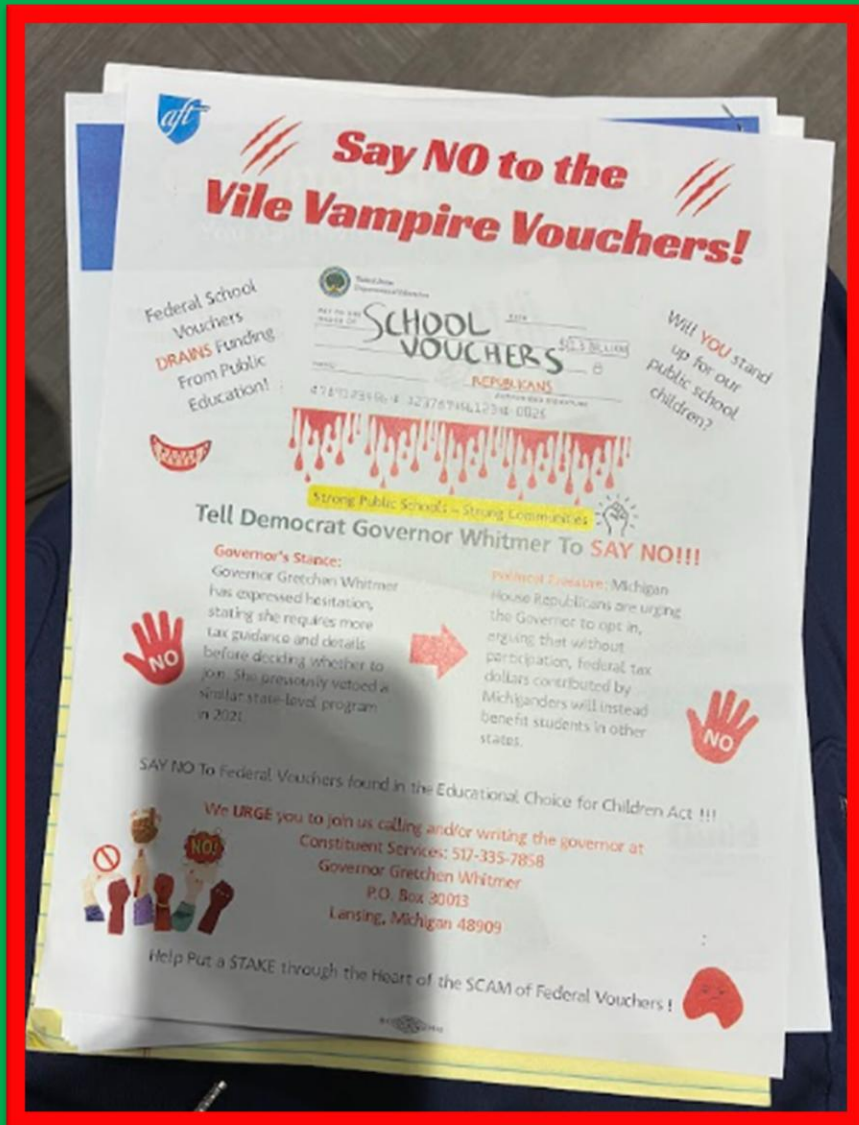 aft
Say NO to the
Vile Vampire Vouchers!
Federal School
Vouchers
DRAINS Funding
From Public
Education!
United States
Department of Education
PAY TO THE
ORDER OF
SCHOOL
VOUCHERS
DATE
REPUBLICANS
Will YOU stand
up for our
public school
children?
Strong Public Schools – Strong Communities
Tell Democrat Governor Whitmer To SAY NO!!!
Governor's Stance:
Governor Gretchen Whitmer
has expressed hesitation,
stating she requires more
tax guidance and details
before deciding whether to
join. She previously vetoed a
similar state-level program
in 2021.
NO
Political Pressure: Michigan
House Republicans are urging
the Governor to opt in,
arguing that without
participation, federal tax
dollars contributed by
Michiganders will instead
benefit students in other
states.
NO
SAY NO To Federal Vouchers found in the Educational Choice for Children Act !!!
We URGE you to join us calling and/or writing the governor at
Constituent Services: 517-335-7858
Governor Gretchen Whitmer
P.O. Box 30013
Lansing, Michigan 48909
NO!
Help Put a STAKE through the Heart of the SCAM of Federal Vouchers !